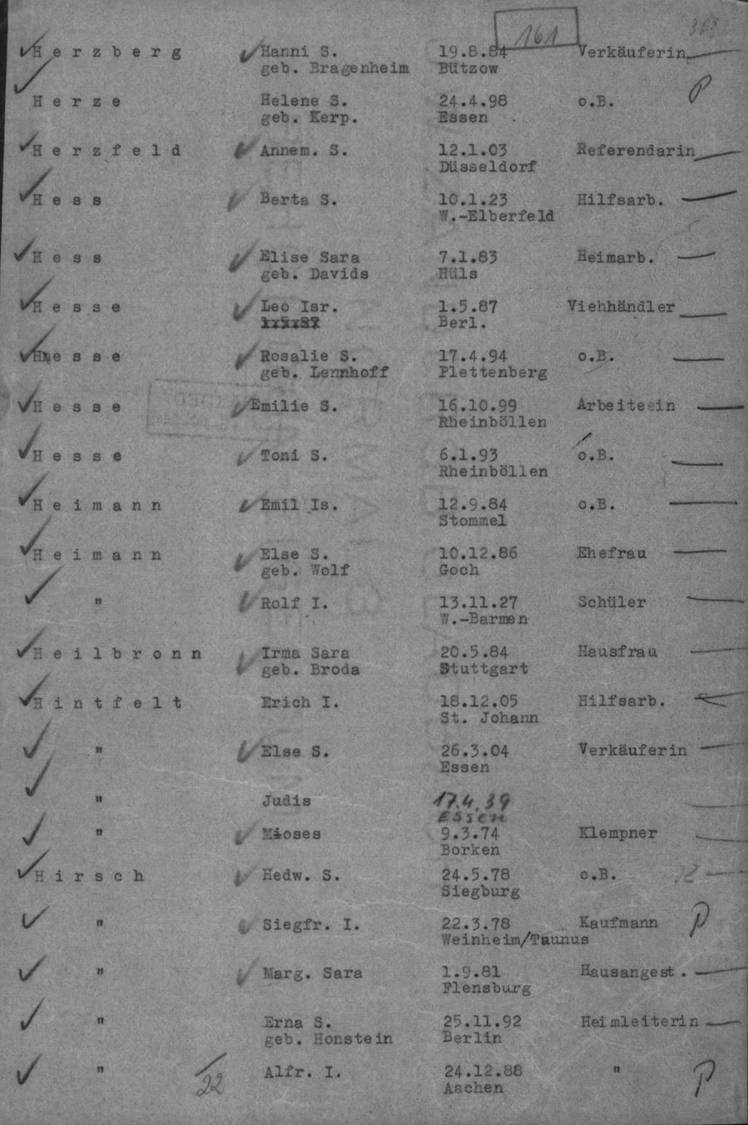 161
H e r z b e r g Hanni S. 19.8.84 Verkäuferin
geb. Bragenheim Bützow
H e r z e Helene S. 24.4.98 o.B. P
geb. Kerp. Essen
H e r z f e l d Annem. S. 12.1.03 Referendarin
Düsseldorf
H e s s Berta S. 10.1.23 Hilfsarb.
W.-Elberfeld
H e s s Elise Sara 7.1.83 Heimarb.
geb. Davids Hüls
H e s s e Leo Isr. 1.5.87 Viehhändler
Berl.
H e s s e Rosalie S. 17.4.94 o.B.
geb. Lennhoff Plettenberg
H e s s e Emilie S. 16.10.99 Arbeiteein
Rheinböllen
H e s s e Toni S. 6.1.93 o.B.
Rheinböllen
H e i m a n n Emil Is. 12.9.84 o.B.
Stommel
H e i m a n n Else S. 10.12.86 Ehefrau
geb. Wolf Goch
" Rolf I. 13.11.27 Schüler
W.-Barmen
H e i l b r o n n Irma Sara 20.5.84 Hausfrau
geb. Broda Stuttgart
H i n t f e l t Erich I. 18.12.05 Hilfsarb.
St. Johann
" Else S. 26.3.04 Verkäuferin
Essen
" Judis 17.4.39
Essen
" Mioses 9.3.74 Klempner
Borken
H i r s c h Hedw. S. 24.5.78 o.B.
Siegburg
" Siegfr. I. 22.3.78 Kaufmann P
Weinheim/Taunus
" Marg. Sara 1.9.81 Hausangest.
Flensburg
" Erna S. 25.11.92 Heimleiterin
geb. Honstein Berlin
" 22 Alfr. I. 24.12.88 " P
Aachen